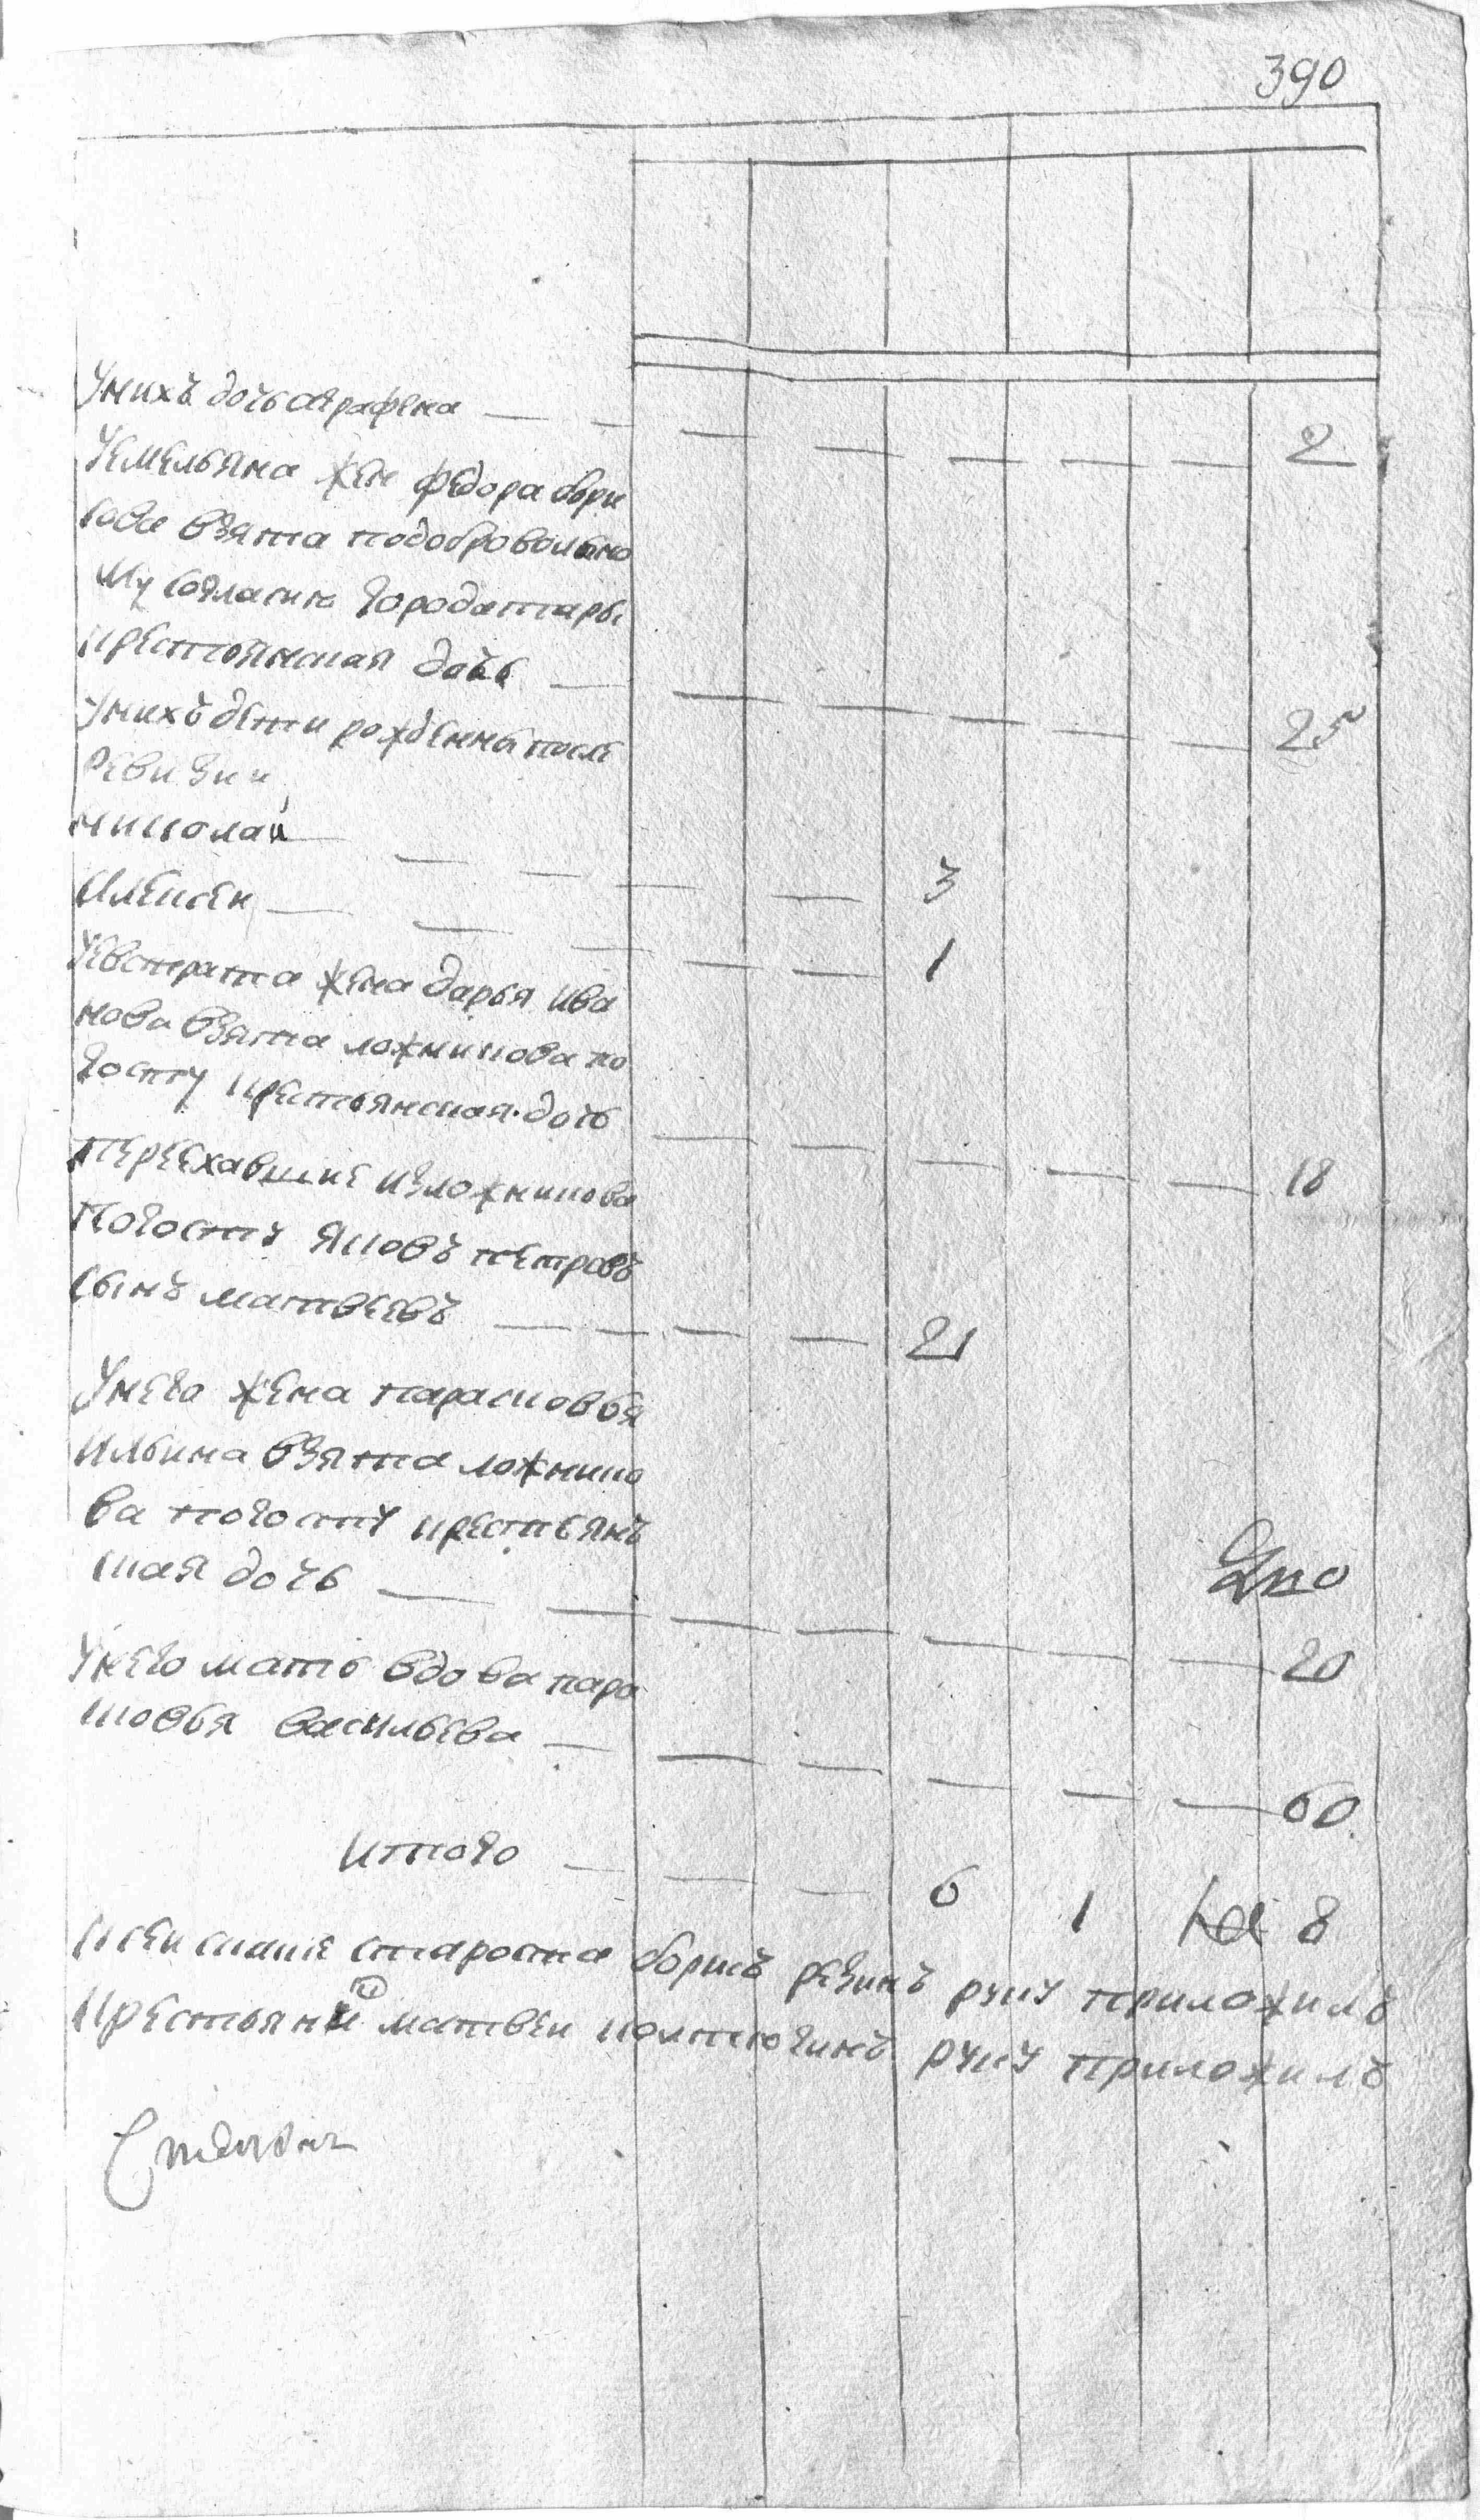 390
Унихъ дочь аграфена 2
Уемельяна жен федора бори
сова взята подобровольно
му согласию города тары
крестьянская дочь 25
унихъ дети рожденны после
ревизии
николай 3
Алексеи 1
Уевстрата жена дарья ива
нова взята ложникова по
госту крестьянская дочь 18
переехавшие изложникова
погосту яковъ петровъ
сынъ матвеевъ 21
Унего жена парасковья
ильина взята ложнико
ва погосту крестьянъ
ская дочь 20
Унего мать вдова пара
сковья васильева 60
итого 6 1 8
ксеи скаске староста борисъ резинъ руку приложилъ
крестьяни матвеи колтюгинъ руку приложилъ